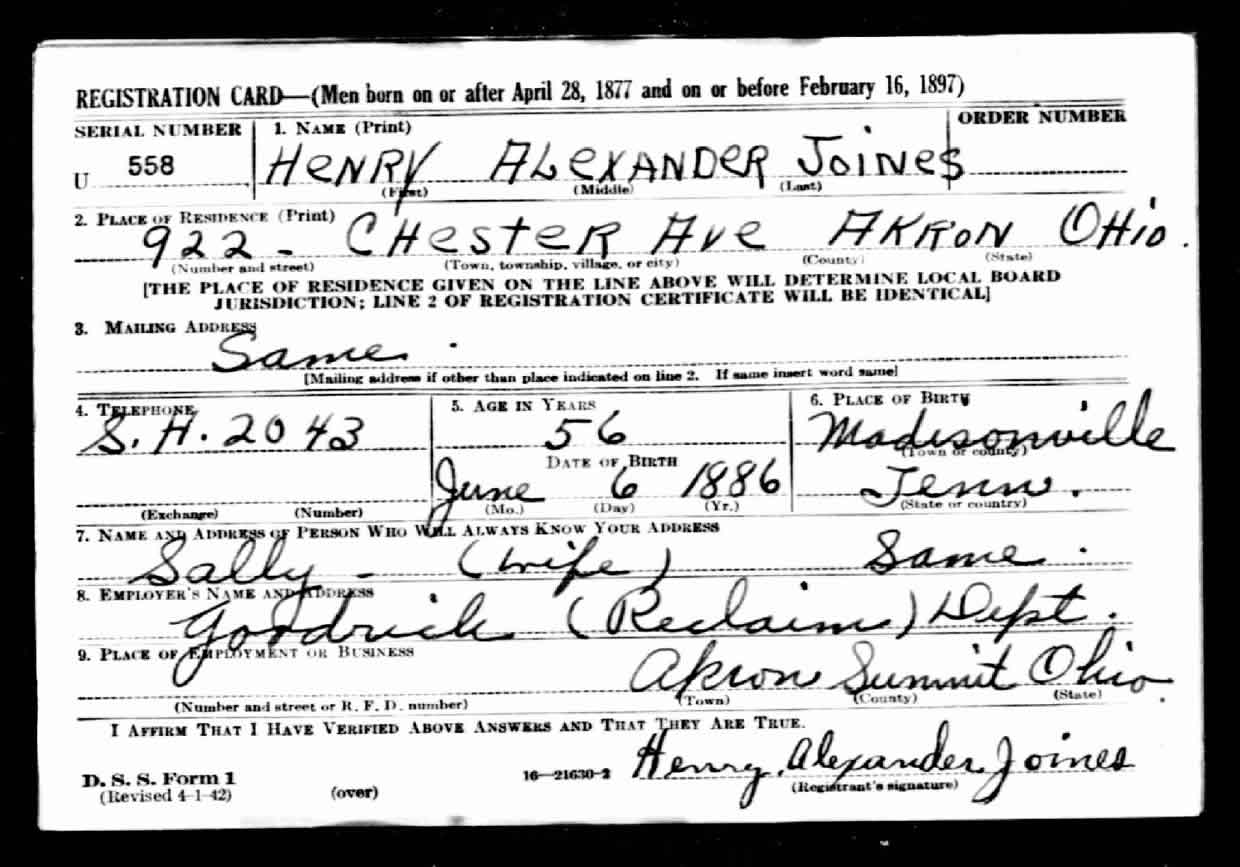 REGISTRATION CARD—(Men born on or after April 28, 1877 and on or before February 16, 1897)
SERIAL NUMBER 1. NAME (Print) ORDER NUMBER
U 558 HENRY ALEXANDER JOINES
(First) (Middle) (Last)
2. PLACE OF RESIDENCE (Print)
922 - CHESTER AVE AKRON OHIO.
(Number and street) (Town, township, village, or city) (County) (State)
[THE PLACE OF RESIDENCE GIVEN ON THE LINE ABOVE WILL DETERMINE LOCAL BOARD
JURISDICTION; LINE 2 OF REGISTRATION CERTIFICATE WILL BE IDENTICAL]
3. MAILING ADDRESS
Same.
[Mailing address if other than place indicated on line 2. If same insert word same]
4. TELEPHONE 5. AGE IN YEARS 6. PLACE OF BIRTH
S.H. 2043 56 Madisonville
DATE OF BIRTH (Town or county)
June 6 1886 Tenn.
(Exchange) (Number) (Mo.) (Day) (Yr.) (State or country)
7. NAME AND ADDRESS OF PERSON WHO WILL ALWAYS KNOW YOUR ADDRESS
Sally - (wife) Same.
8. EMPLOYER'S NAME AND ADDRESS
Goodrich (Reclaim) Dept.
9. PLACE OF EMPLOYMENT OR BUSINESS
Akron Summit Ohio.
(Number and street or R. F. D. number) (Town) (County) (State)
I AFFIRM THAT I HAVE VERIFIED ABOVE ANSWERS AND THAT THEY ARE TRUE.
D. S. S. Form 1 16—21630-2 Henry Alexander Joines
(Revised 4-1-42) (over) (Registrant's signature)